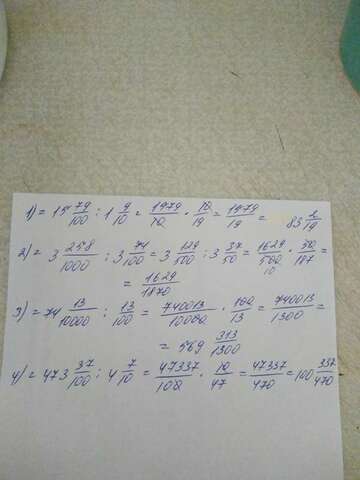 1) = 15 79/100 : 1 9/10 = 1579/10 · 10/19 = 1579/19 = 83 2/19
2) = 3 258/1000 : 3 74/100 = 3 129/500 : 3 37/50 = 1629/500 10 · 50/187 =
= 1629/1870
3) = 74 13/10000 : 13/100 = 740013/10000 · 100/13 = 740013/1300 =
= 569 313/1300
4) = 473 37/100 : 4 7/10 = 47337/100 · 10/47 = 47337/470 = 100 337/470